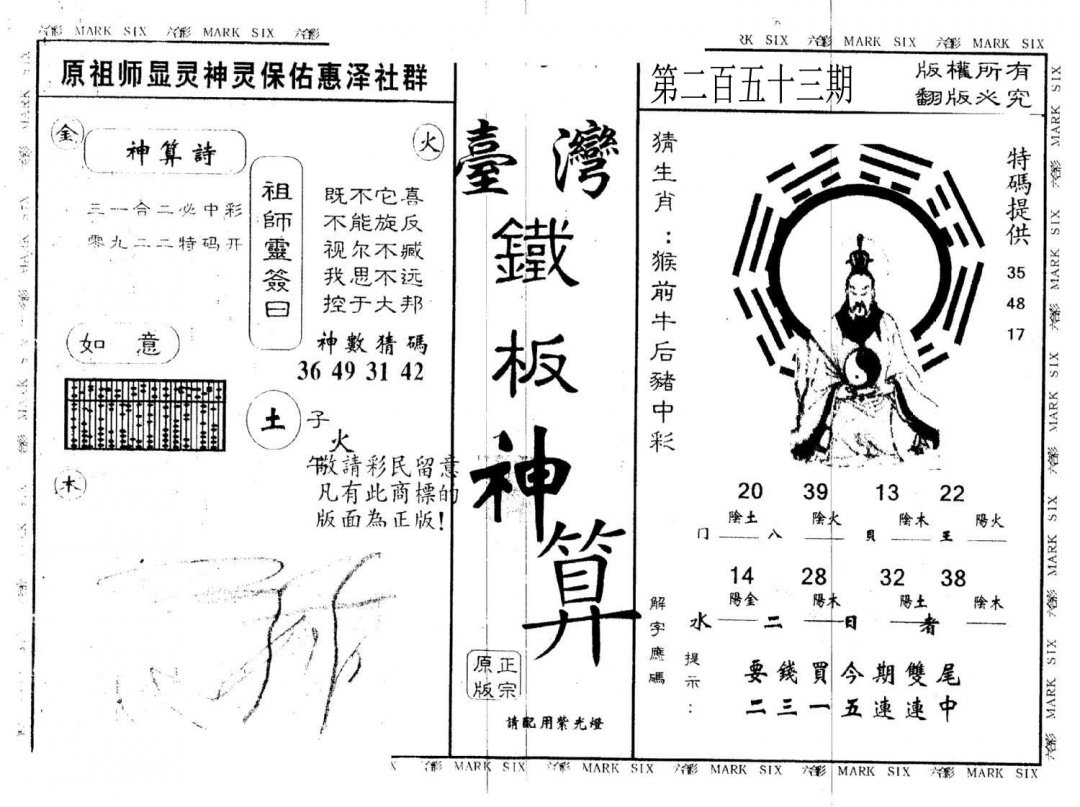 六合彩 MARK SIX 六合彩 MARK SIX 六合彩
MARK SIX 六合彩 MARK SIX 六合彩 MARK SIX
原祖师显灵神灵保佑惠泽社群
金
神算詩
火
三一合二必中彩
零九二二特码开
祖師靈簽曰
既不它喜
不能旋反
视尔不臧
我思不远
控于大邦
如意
神數猜碼
36 49 31 42
土
子
火
午
木
敬請彩民留意
凡有此商標的
版面為正版!
臺灣
鐵板神算
正宗
原版
請配用紫光燈
第二百五十三期
版權所有
翻版必究
猜生肖:猴前牛后豬中彩
特碼提供
35
48
17
20 39 13 22
陰土 陰火 陰木 陽火
门 八 貝 王
14 28 32 38
陽金 陽木 陽土 陰木
水 二 日 者
解字應碼
提示:
要錢買今期雙尾
二三一五連連中
六合彩 MARK SIX 六合彩 MARK SIX 六合彩 MARK SIX 六合彩 MARK SIX 六合彩 MARK SIX
MARK SIX 六合彩 MARK SIX 六合彩 MARK SIX 六合彩 MARK SIX 六合彩 MARK SIX 六合彩